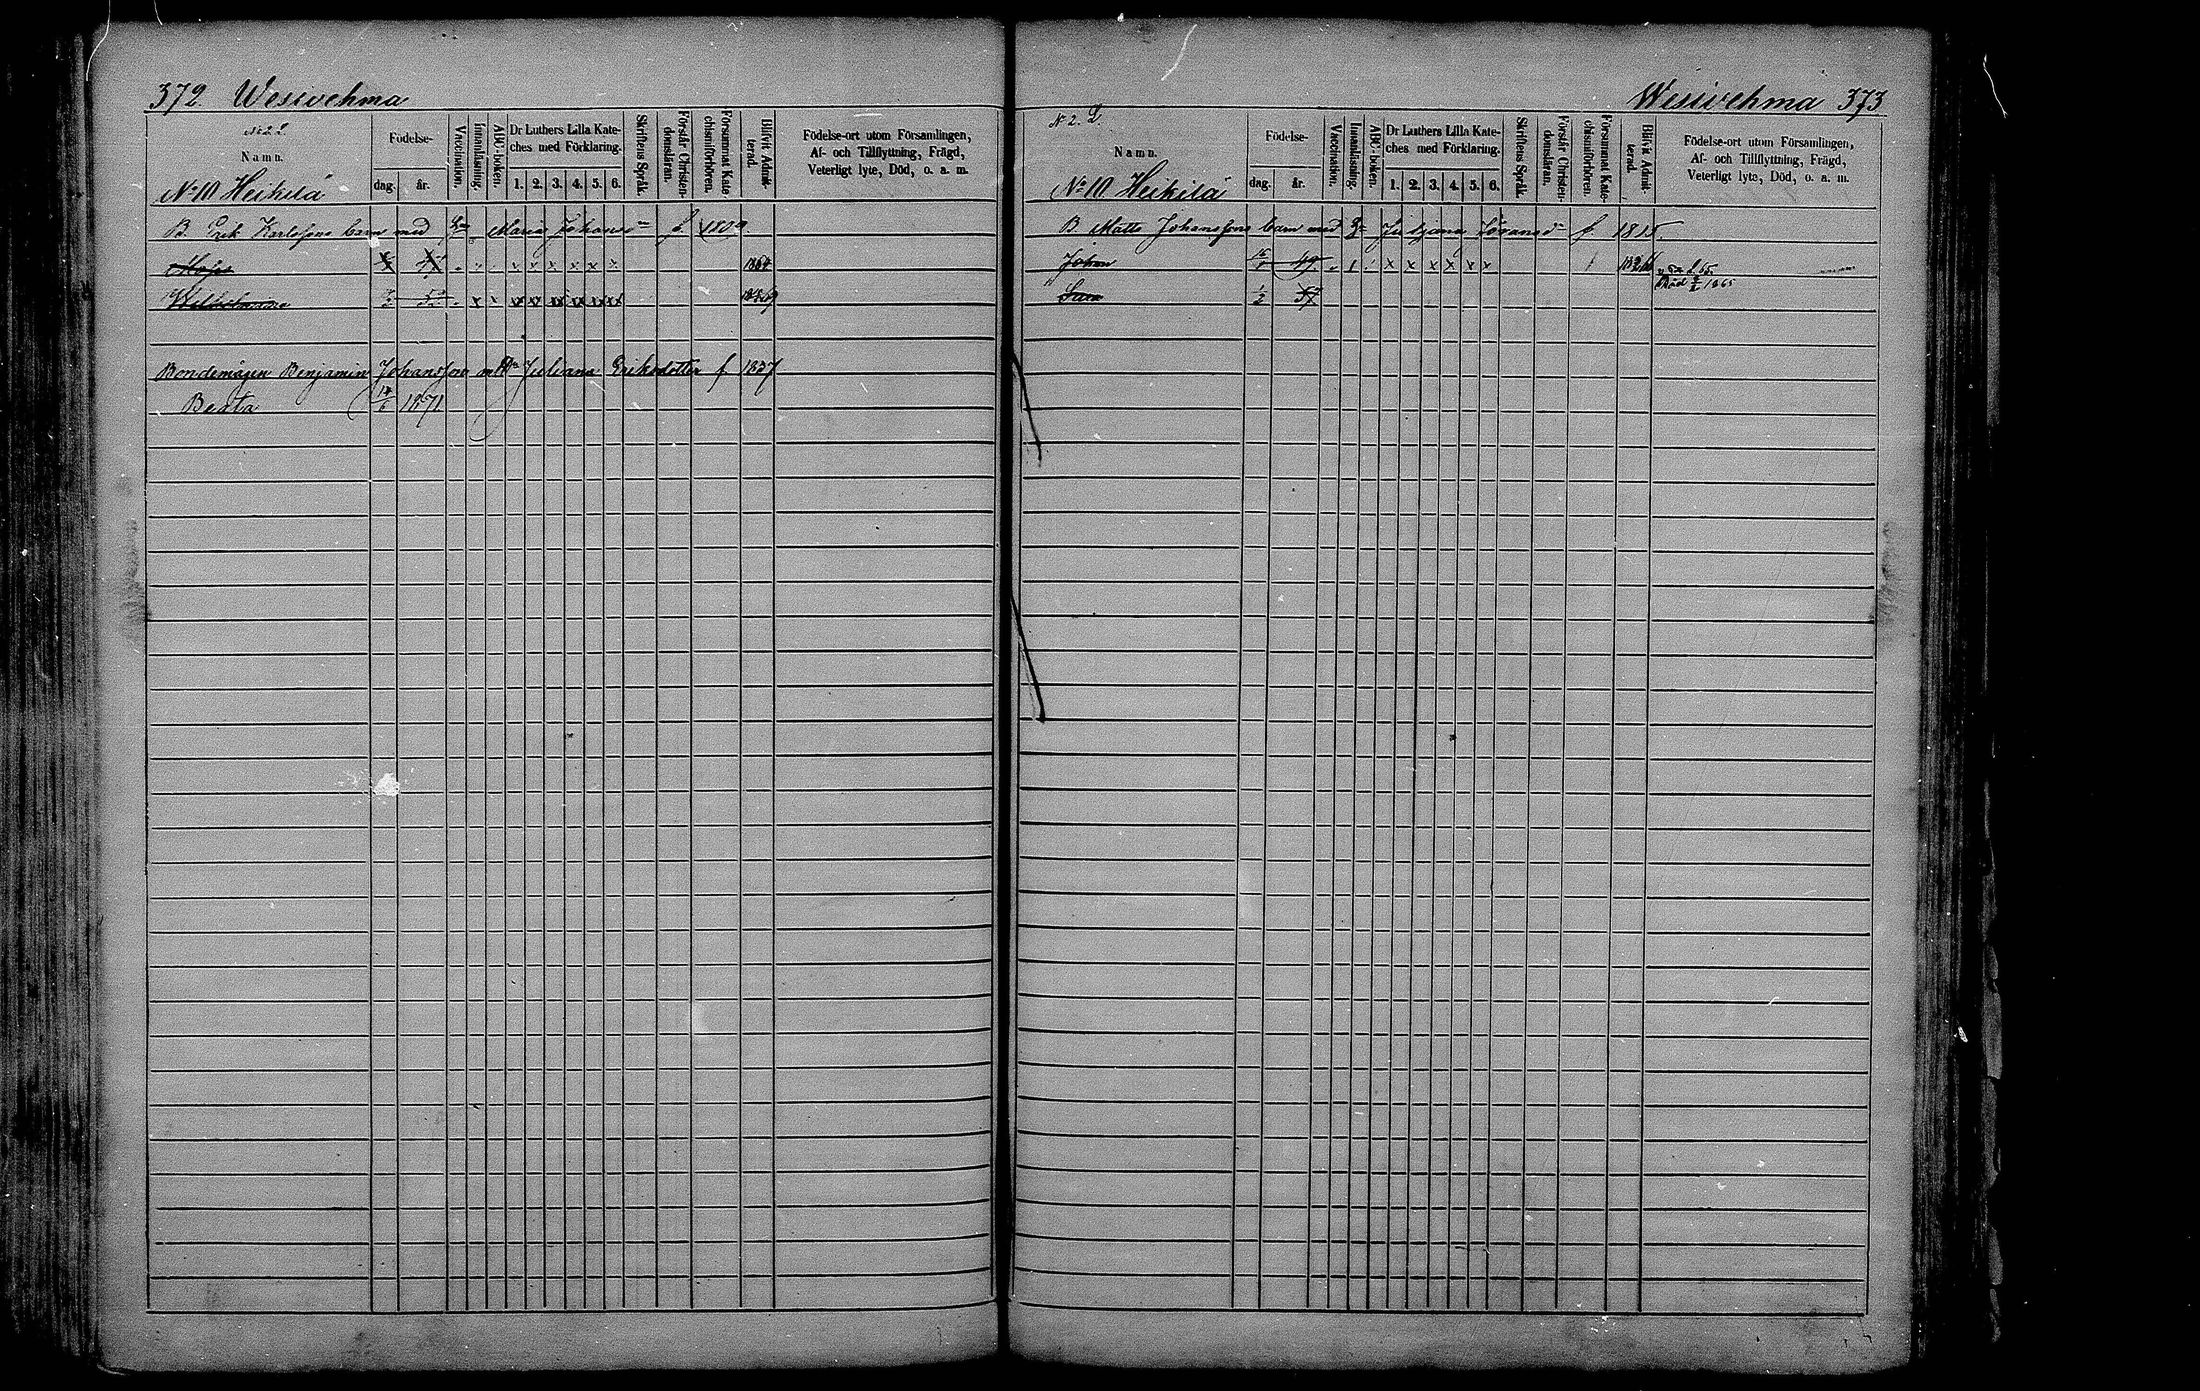 372. Wesivehma
No 2. 2.
Namn.
Födelse-
dag. år.
Vaccination.
Innanläsning.
ABC-boken.
Dr Luthers Lilla Kate-
ches med Förklaring.
1. 2. 3. 4. 5. 6.
Skriftens Språk.
Förstår Christen-
domsläran.
Försummat Kate-
chismiförhören.
Blifvit Admit-
terad.
Födelse-ort utom Församlingen,
Af- och Tillflyttning, Frägd,
Veterligt lyte, Död, o. a. m.
No 10 Heikilä
B. Erik Karlssons barn med Maria Johans f.
x x x x x x 1864
Wilhelmina
Bondemågen Benjamin Johansson m H Juliana Eriksdotter f 1837
Beata 14/6 1871
Wesivehma 373
No 2. 2.
Namn.
Födelse-
dag. år.
Vaccination.
Innanläsning.
ABC-boken.
Dr Luthers Lilla Kate-
ches med Förklaring.
1. 2. 3. 4. 5. 6.
Skriftens Språk.
Förstår Christen-
domsläran.
Försummat Kate-
chismiförhören.
Blifvit Admit-
terad.
Födelse-ort utom Församlingen,
Af- och Tillflyttning, Frägd,
Veterligt lyte, Död, o. a. m.
No 10 Heikilä
B Matts Johanssons barn med f 1815
Johan 49 x x x x x x
Död 1865
57